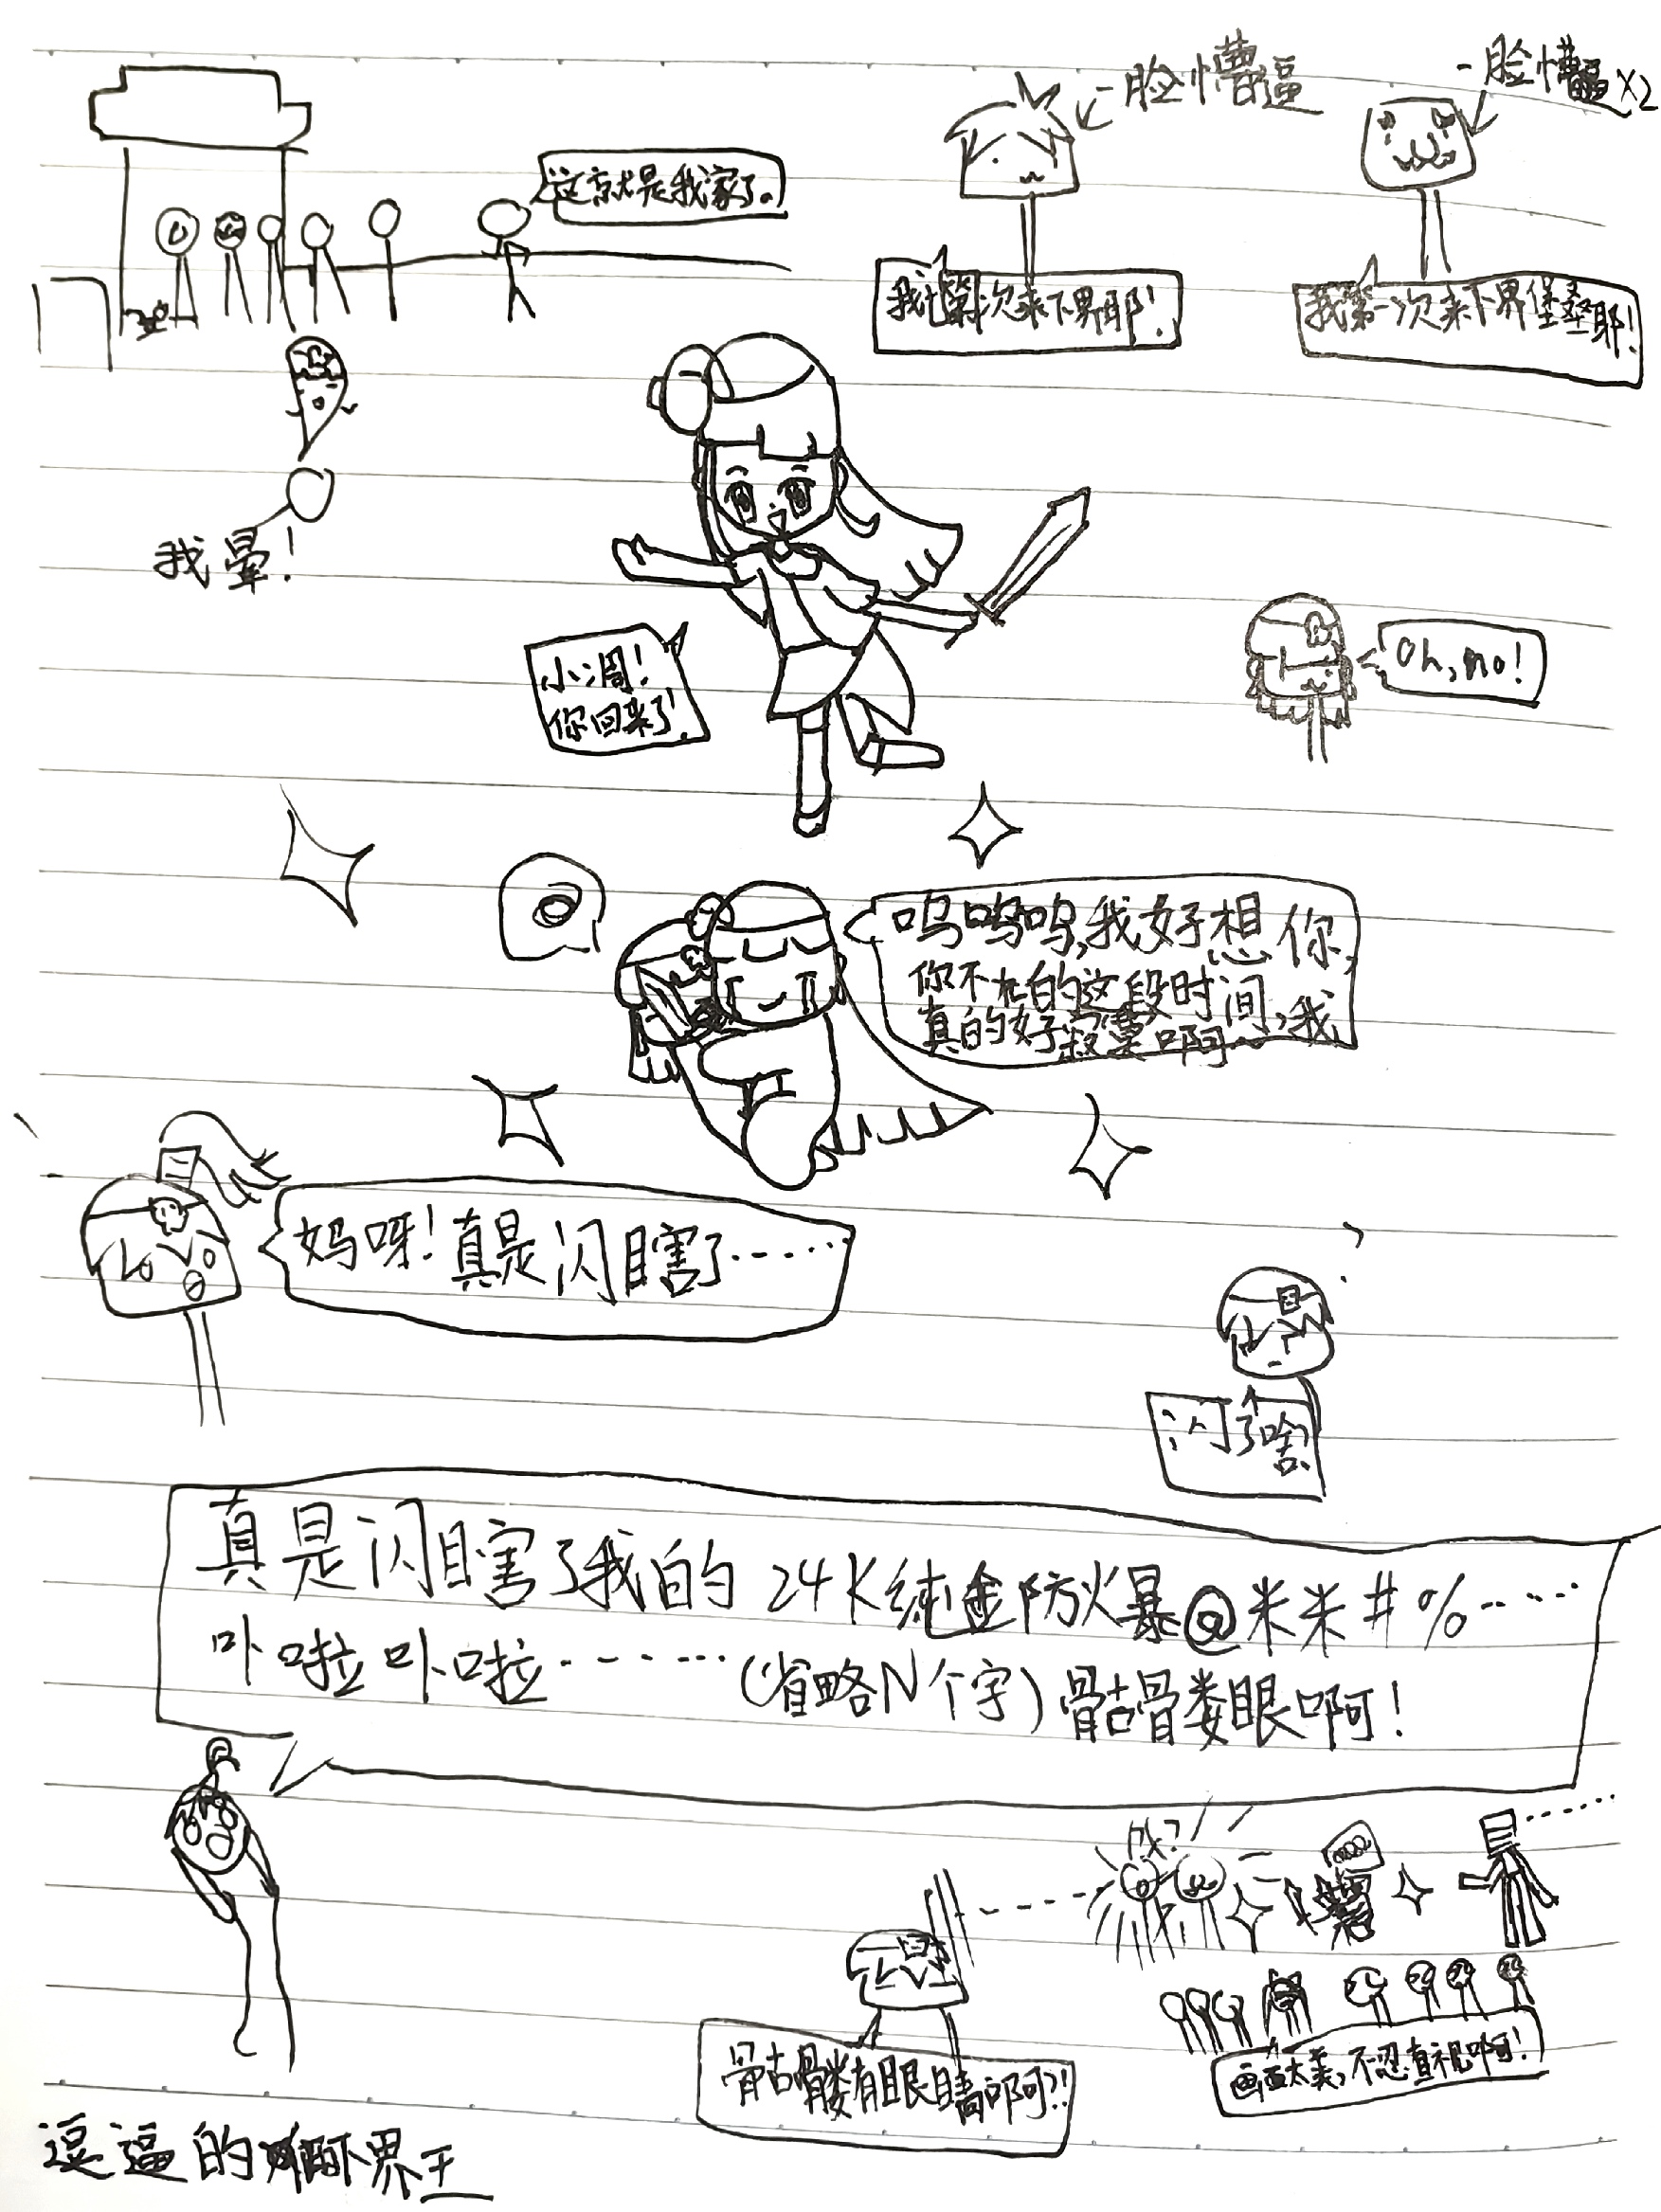 一脸懵逼
一脸懵逼X2
这就是我家了。
我也第一次来下界耶!
我第一次来下界堡垒耶!
我晕!
小凋!
你回来了!
Oh,no!
呜呜呜,我好想你,
你不在的这段时间,我
真的好寂寞啊~
妈呀!真是闪瞎了……
闪了啥
真是闪瞎了我的24K纯金防火暴@米米#%……
卟啦卟啦……(省略N个字)骷髅眼啊!
骷髅有眼睛啊?!
画面太美,不忍直视啊!
逗逼的
下界王